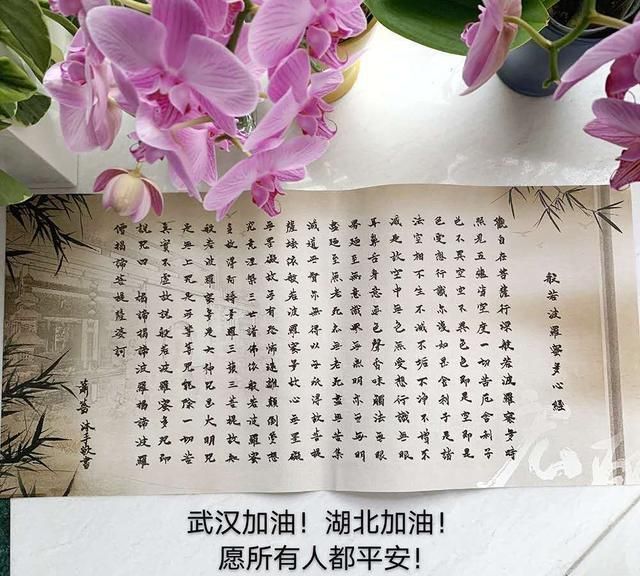 般若波羅蜜多心經
觀自在菩薩行深般若波羅蜜多時
照見五蘊皆空度一切苦厄舍利子
色不異空空不異色色即是空空即是
色受想行識亦復如是舍利子是諸
法空相不生不滅不垢不淨不增不
減是故空中無色無受想行識無眼
耳鼻舌身意無色聲香味觸法無眼
界乃至無意識界無無明亦無無明
盡乃至無老死亦無老死盡無苦集
滅道無智亦無得以無所得故菩提
薩埵依般若波羅蜜多故心無罣礙
無罣礙故無有恐怖遠離顛倒夢想
究竟涅槃三世諸佛依般若波羅蜜
多故得阿耨多羅三藐三菩提故知
般若波羅蜜多是大神咒是大明咒
是無上咒是無等等咒能除一切苦
真實不虛故說般若波羅蜜多咒即
說咒曰 揭諦揭諦波羅揭諦波羅
僧揭諦菩提薩婆訶
沐手敬書
武汉加油！湖北加油！
愿所有人都平安！